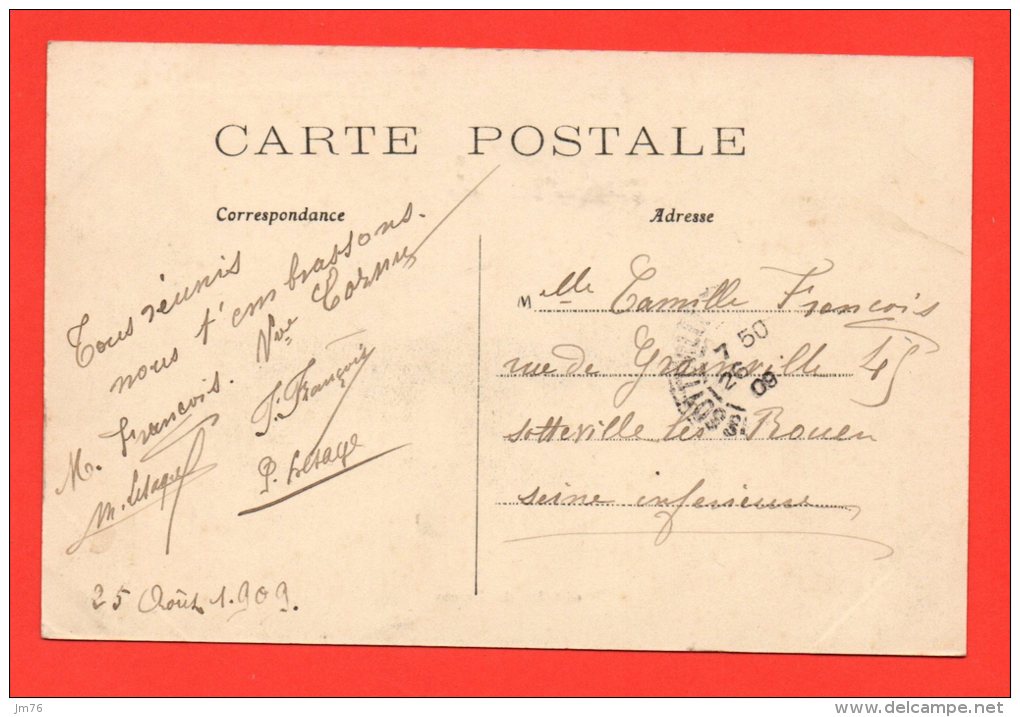 CARTE POSTALE
Correspondance
Adresse
Tous réunis
nous t'embrassons.
Vve Cornu
M. François.
J. François
M. Lesage
P. Lesage
25 Août 1909.
Melle Camille François
rue de Grainville 45
Sotteville les Rouen
Seine inferieure
7 50
26
09
jm76
www.delcampe.net